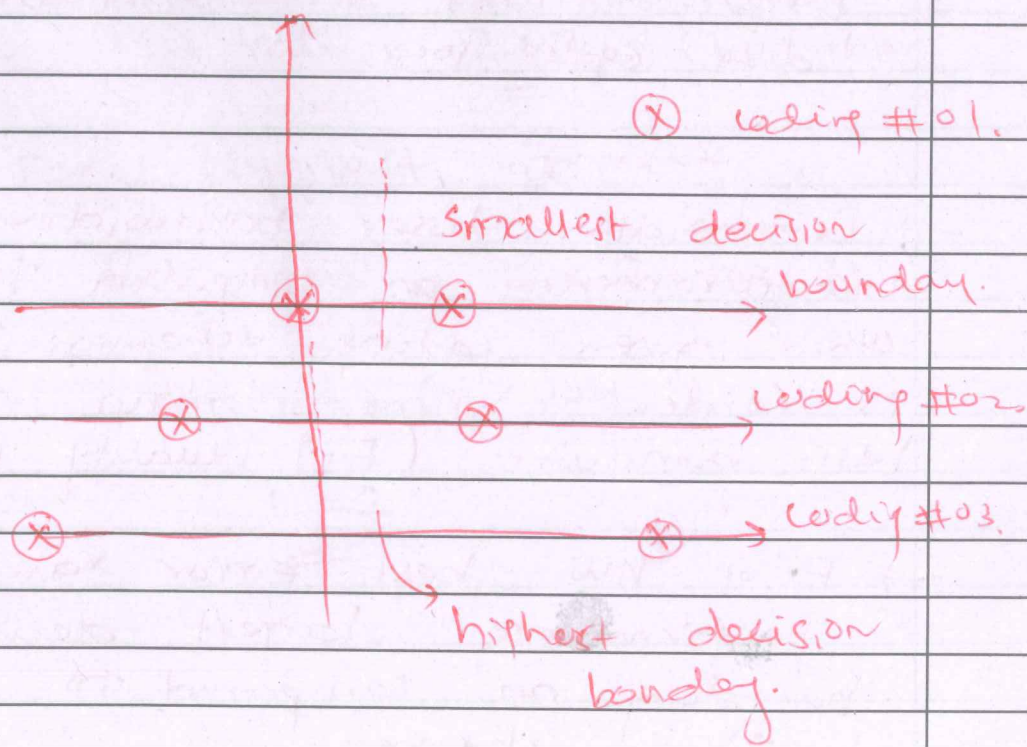 ⓧ coding #01.
smallest decision
boundary.
coding #02.
coding #03.
highest decision
bounday.